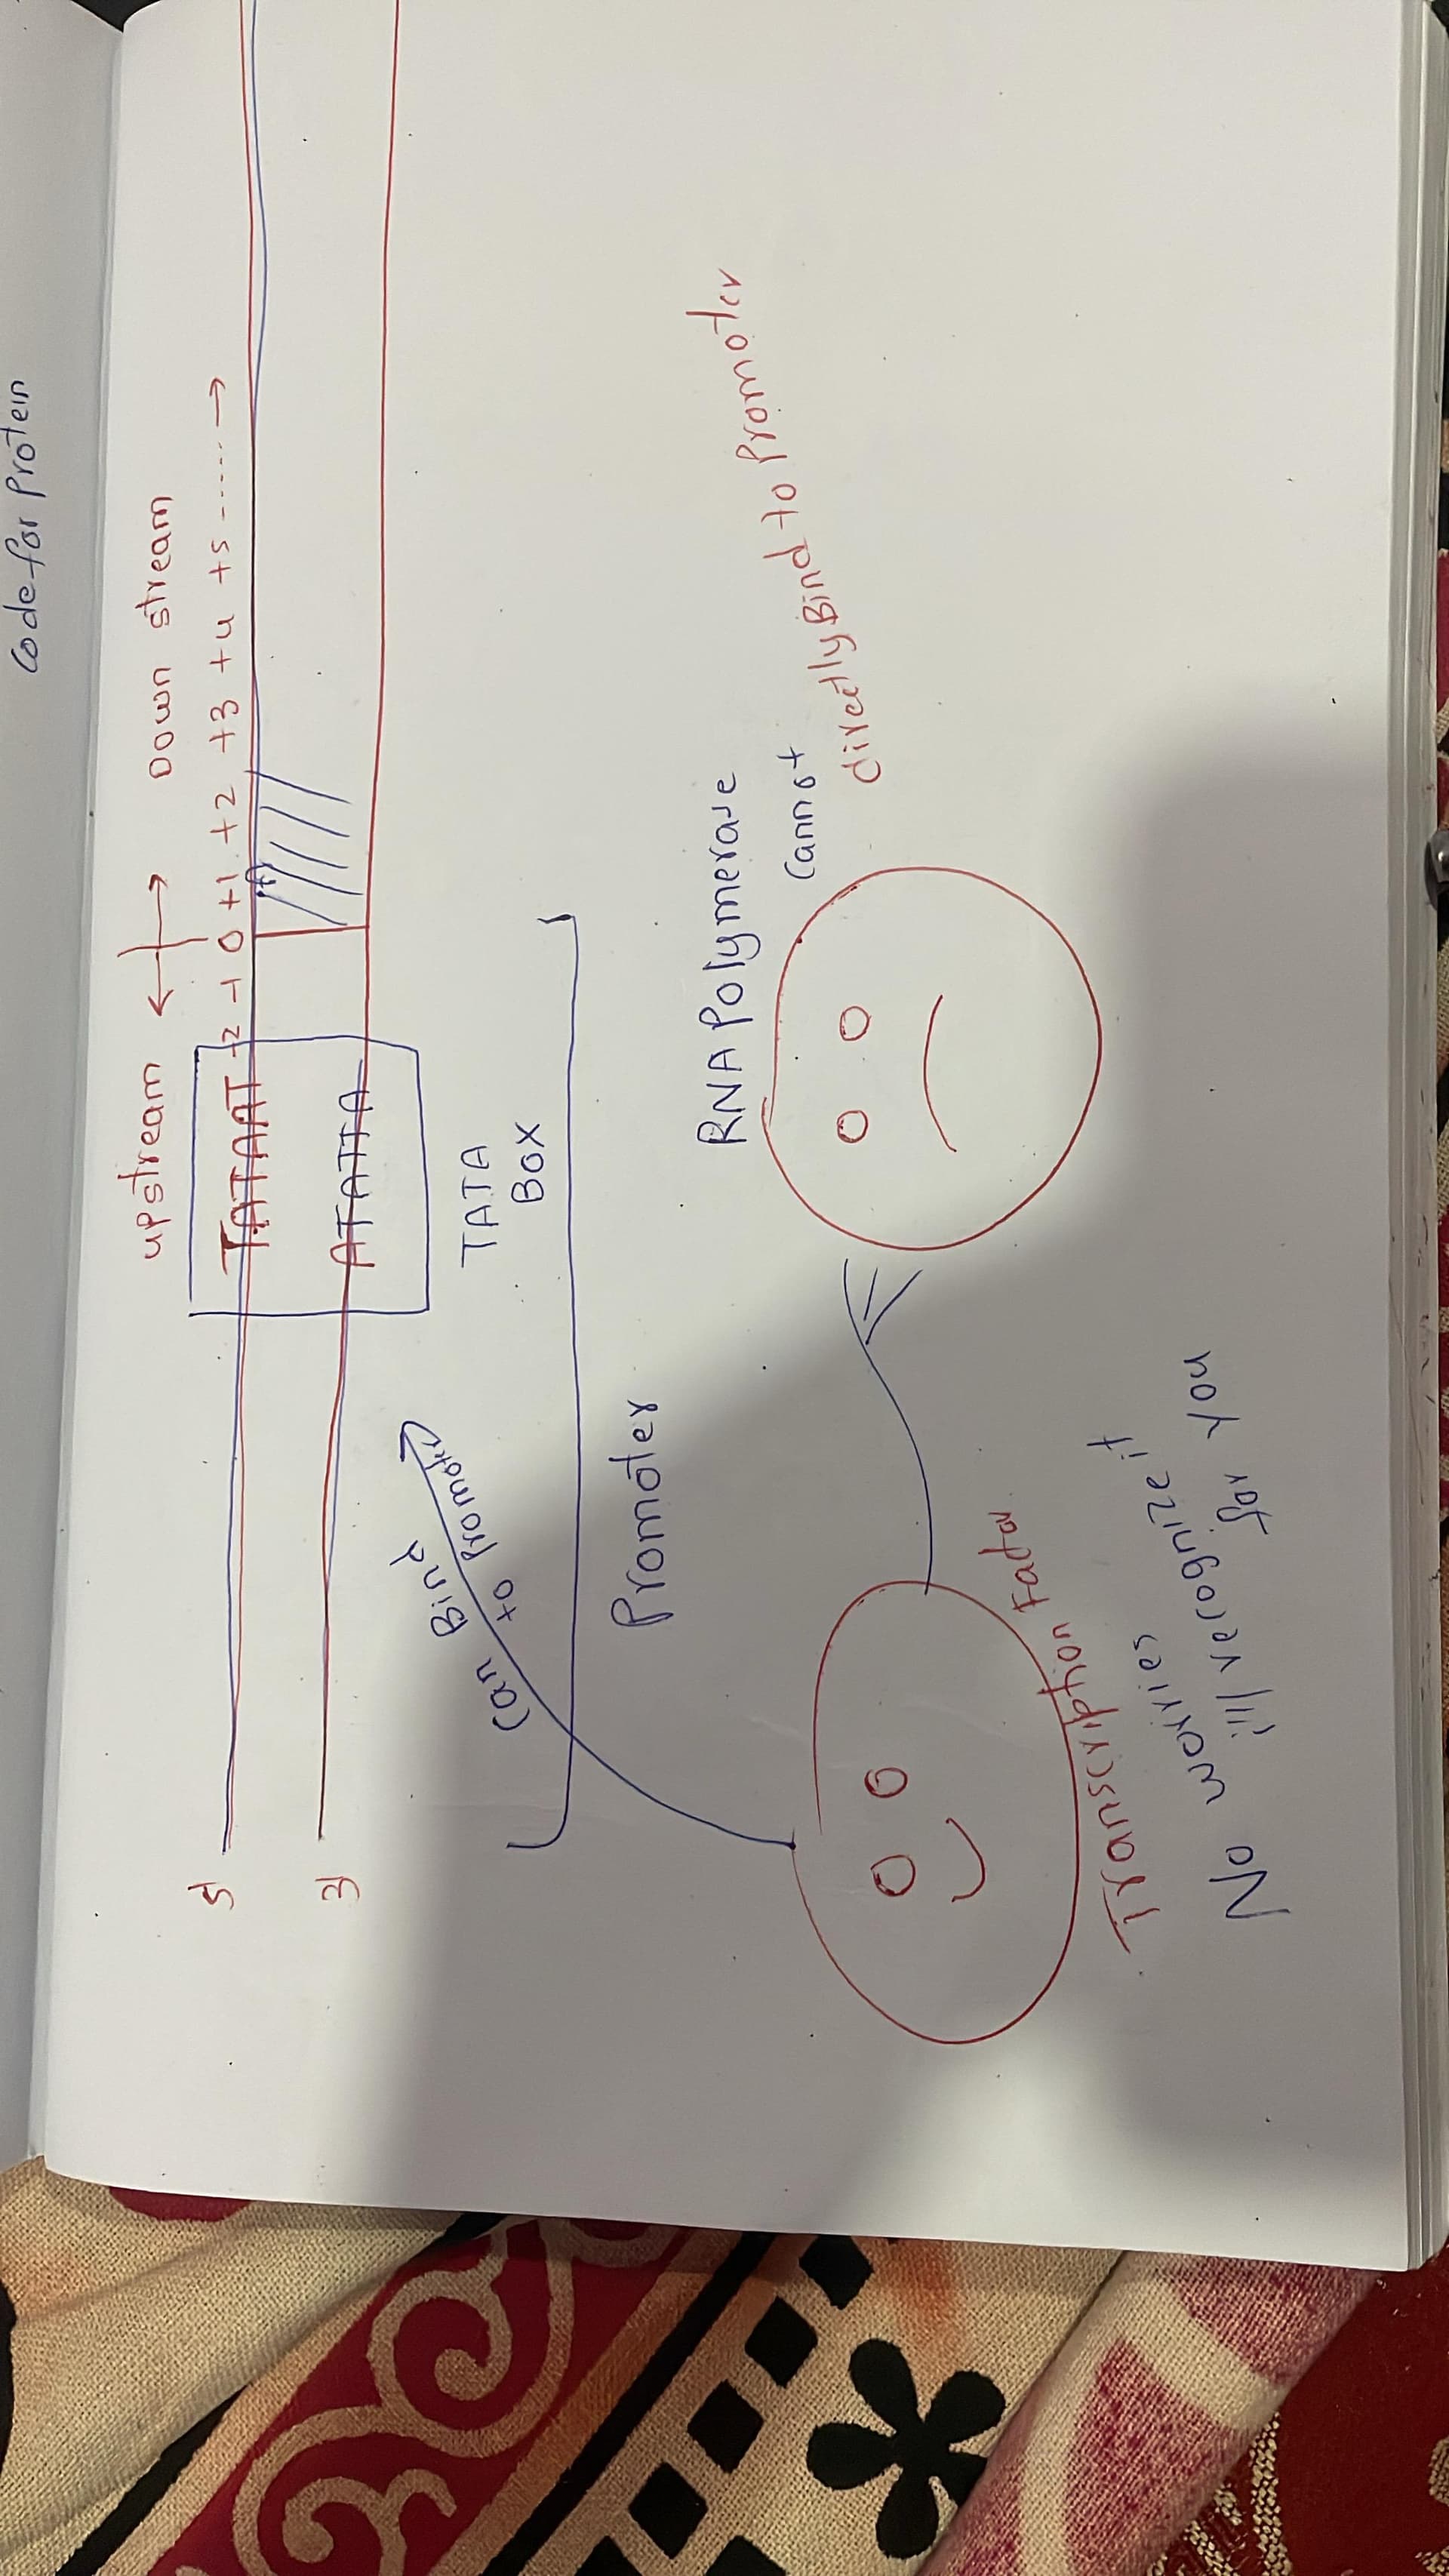 Code for Protein
upstream ← → Down stream
-2 -1 0 +1 +2 +3 +4 +5 ------→
5'
TATAAT
3'
ATATTA
TATA
Box
Can Bind
to Promoter
Promoter
RNA Polymerase
Cannot
directly Bind to Promoter
Transcription Factor
No worries
i'll recognize it
for You